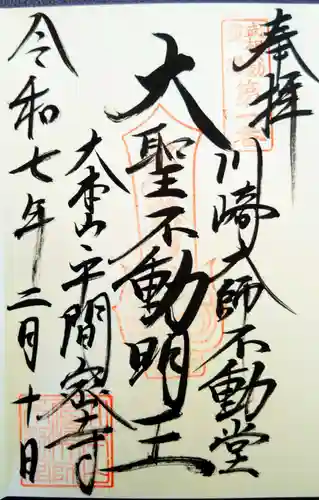 奉拝
川崎大師不動堂
大聖不動明王
大本山平間密寺
令和七年二月十日